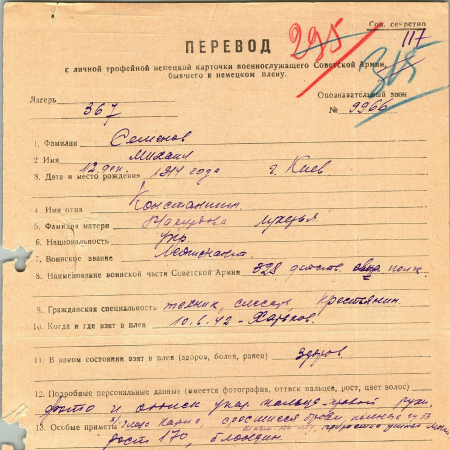 Сов. секретно
295 117
ПЕРЕВОД
с личной трофейной немецкой карточки военнослужащего Советской Армии,
бывшего в немецком плену.
Лагерь 367
Опознавательный знак
№ 9966
1. Фамилия Семенов
2. Имя Михаил
3. Дата и место рождения 12 1914 года г. Киев
4. Имя отца Константин
5. Фамилия матери
6. Национальность укр
7. Воинское звание Лейтенант
8. Наименование воинской части Советской Армии 328 полк
9. Гражданская специальность техник, слесарь
10. Когда и где взят в плен 10.6.42 - Харьков.
11. В каком состоянии взят в плен (здоров, болен, ранен) Здоров.
12. Подробные персональные данные (имеется фотография, оттиск пальцев, рост, цвет волос)
фото и оттиск указ. пальца правой руки.
13. Особые приметы глаза карие, сросшиеся брови,
рост 170, блондин.